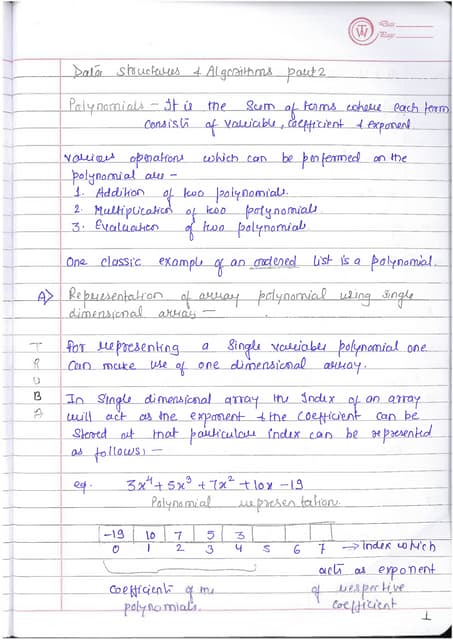 TW
Date
Page
Data Structures & Algorithms part 2
Polynomials - It is the Sum of terms where each term
consists of variable, coefficient & exponent.
Various operations which can be performed on the
polynomial are -
1. Addition of two polynomials.
2. Multiplication of two polynomials.
3. Evaluation of two polynomials
One classic example of an ordered list is a polynomial.
A> Representation of array polynomial using single
dimensional array -
For representing a Single variable polynomial one
can make use of one dimensional array.
In Single dimensional array the Index of an array
will act as the exponent & the coefficient can be
Stored at that particular index can be represented
as follows: -
T
R
U
B
A
eg. 3x⁴ + 5x³ + 7x² + 10x - 19
Polynomial representation.
-19 10 7 5 3
0 1 2 3 4 5 6 7 → Index which
acts as exponent
of respective
coefficient
Coefficients of the
polynomials.
1